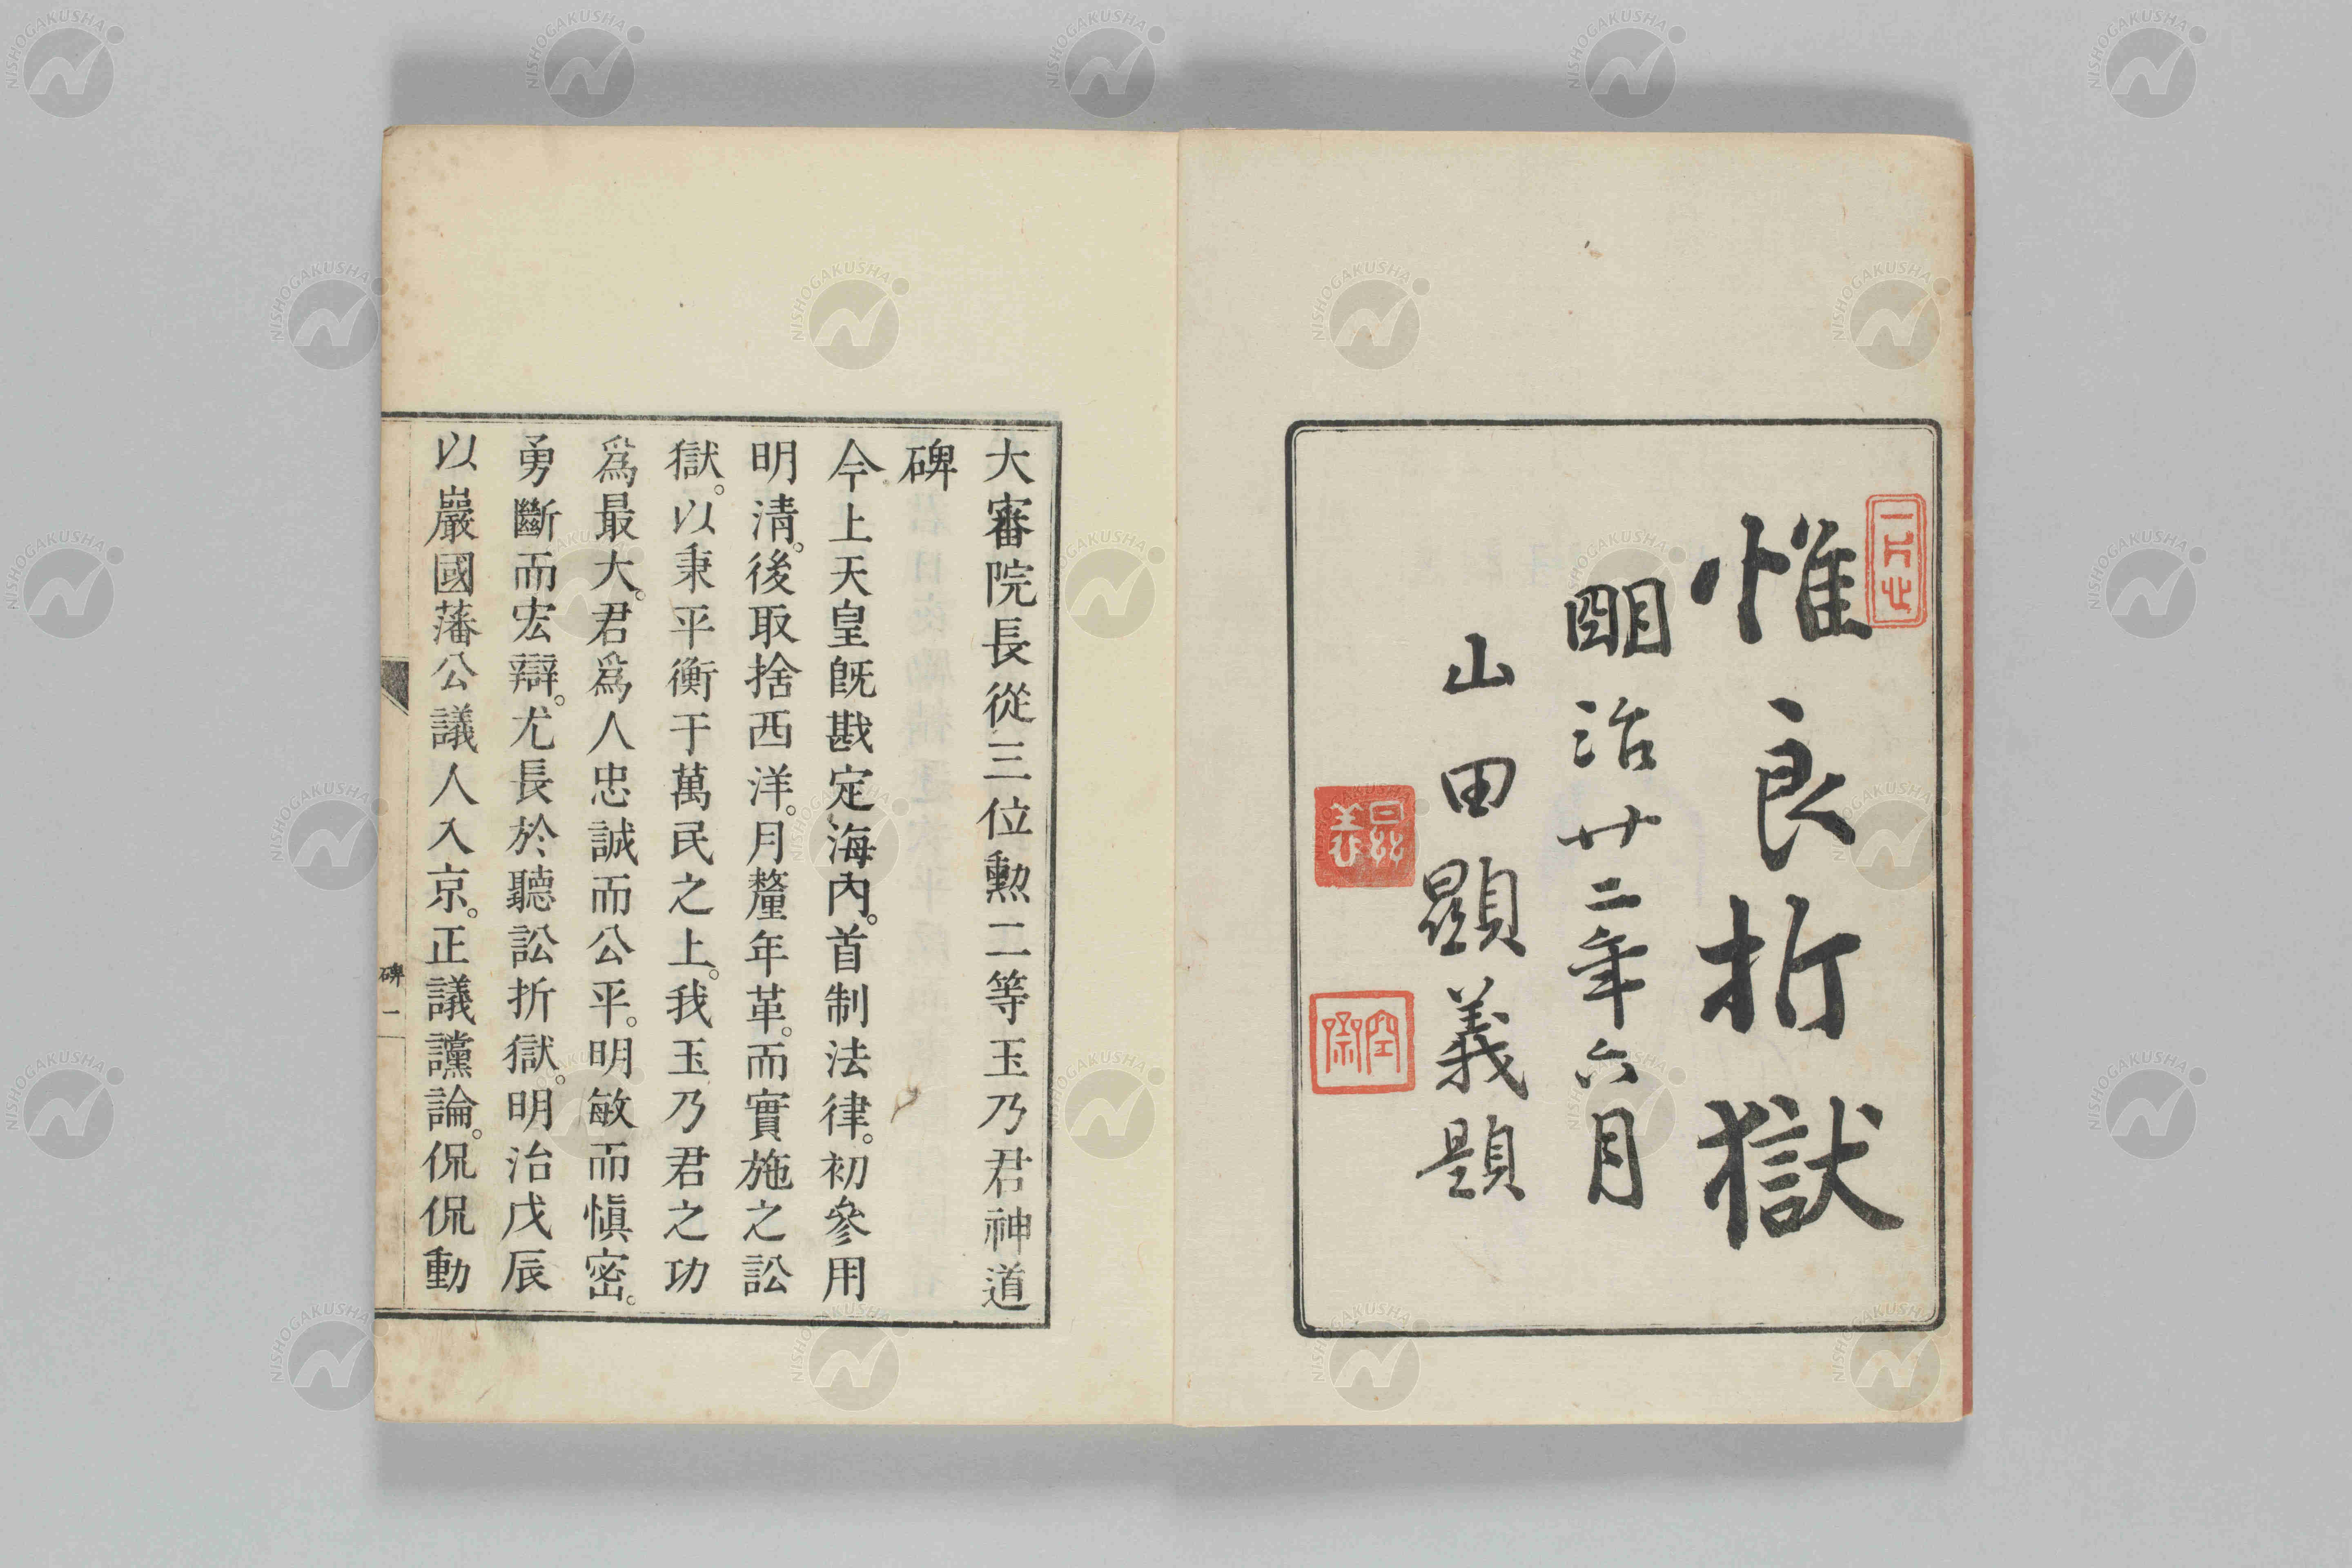 惟良折獄
明治廿二年六月
山田顯義題
大審院長從三位勲二等玉乃君神道
碑
今上天皇旣戡定海內。首制法律。初參用
明清。後取捨西洋。月釐年革。而實施之訟
獄。以秉平衡于萬民之上。我玉乃君之功
爲最大。君爲人忠誠而公平。明敏而愼密。
勇斷而宏辯。尤長於聽訟折獄。明治戊辰
以嚴國藩公議人入京。正議讜論。侃侃動
碑 一
NISHOGAKUSHA